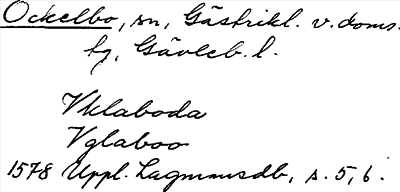 Ockelbo, sn, Gästrikl. v. doms.
hg, Gävleb. l.
Vklaboda
Vglaboo
1578 Uppl. Lagmansdb, s. 5, 6.